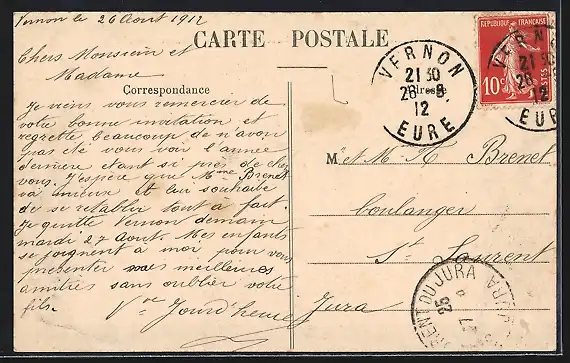 Vernon le 26 Aout 1912
CARTE POSTALE
Chers Monsieur et
Madame
Correspondance
Je viens vous remercier de
votre bonne invitation et
regrette beaucoup de n'avoir
pas été vous voir l'année
dernière étant si près de chez
vous. J'espère que Mme Brenet
va mieux et lui souhaite
de se rétablir tout à fait.
Je quitte Vernon demain
mardi 27 Aout. Mes enfants
se joignent à moi pour vous
présenter mes meilleures
amitiés sans oublier votre
fils.
Vve Jourd'heuil
VERNON
21 30
26 -8
12
EURE
Adresse
REPUBLIQUE FRANÇAISE
10c
POSTES
VERNON
21 30
26 -8
12
EURE
M et M. Brenet
boulanger
St Laurent
Jura
ST LAURENT DU JURA